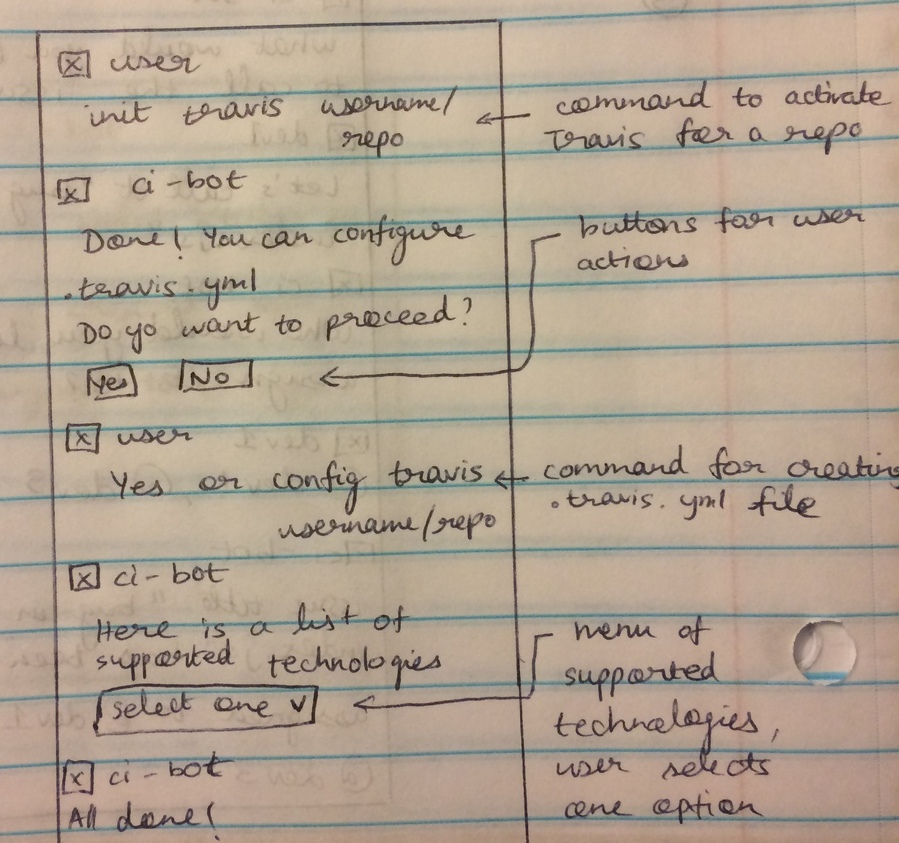 [x] user
init travis username/
repo
command to activate
Travis for a repo
[x] ci-bot
Done! You can configure
.travis.yml
Do yo want to proceed?
Yes No
buttons for user
actions
[x] user
Yes or config travis
username/repo
command for creating
.travis.yml file
[x] ci-bot
Here is a list of
supported technologies
select one v
menu of
supported
technologies,
user selects
one option
[x] ci-bot
All done!